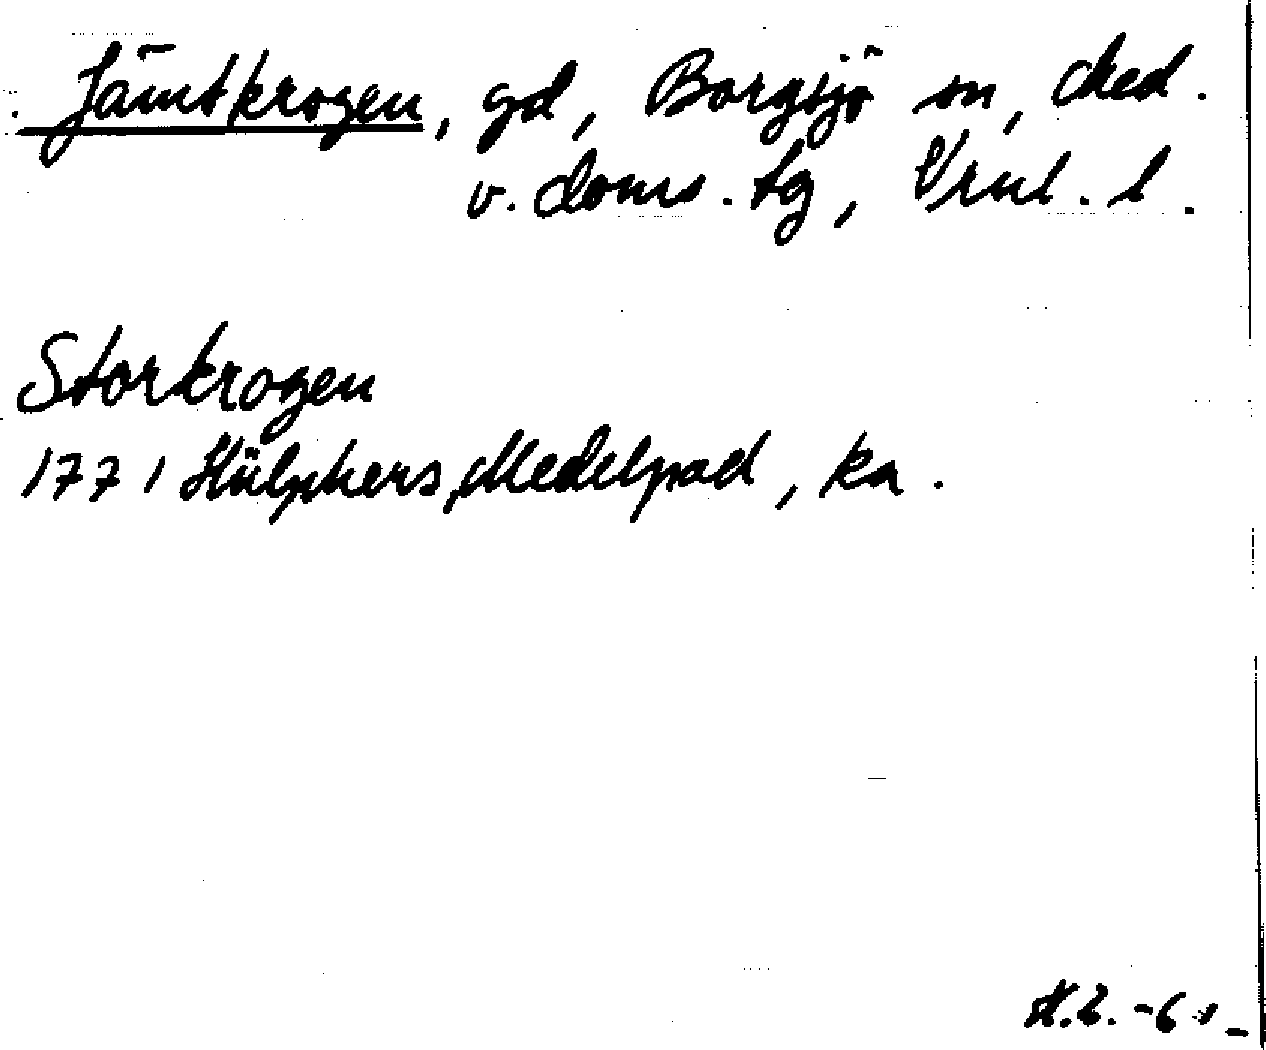 Jämtkrogen, gd, Borgsjö sn, Med.
v. doms. tg, Vrnl. l.
Storkrogen
1771 Hülphers, Medelpad, ka.